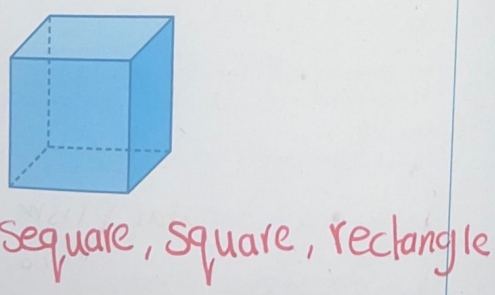 sequare, square, rectangle